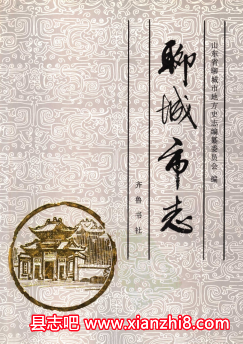 山东省聊城市地方史志编纂委员会 编
聊城市志
齐鲁书社
县志吧 www.xianzhi8.com